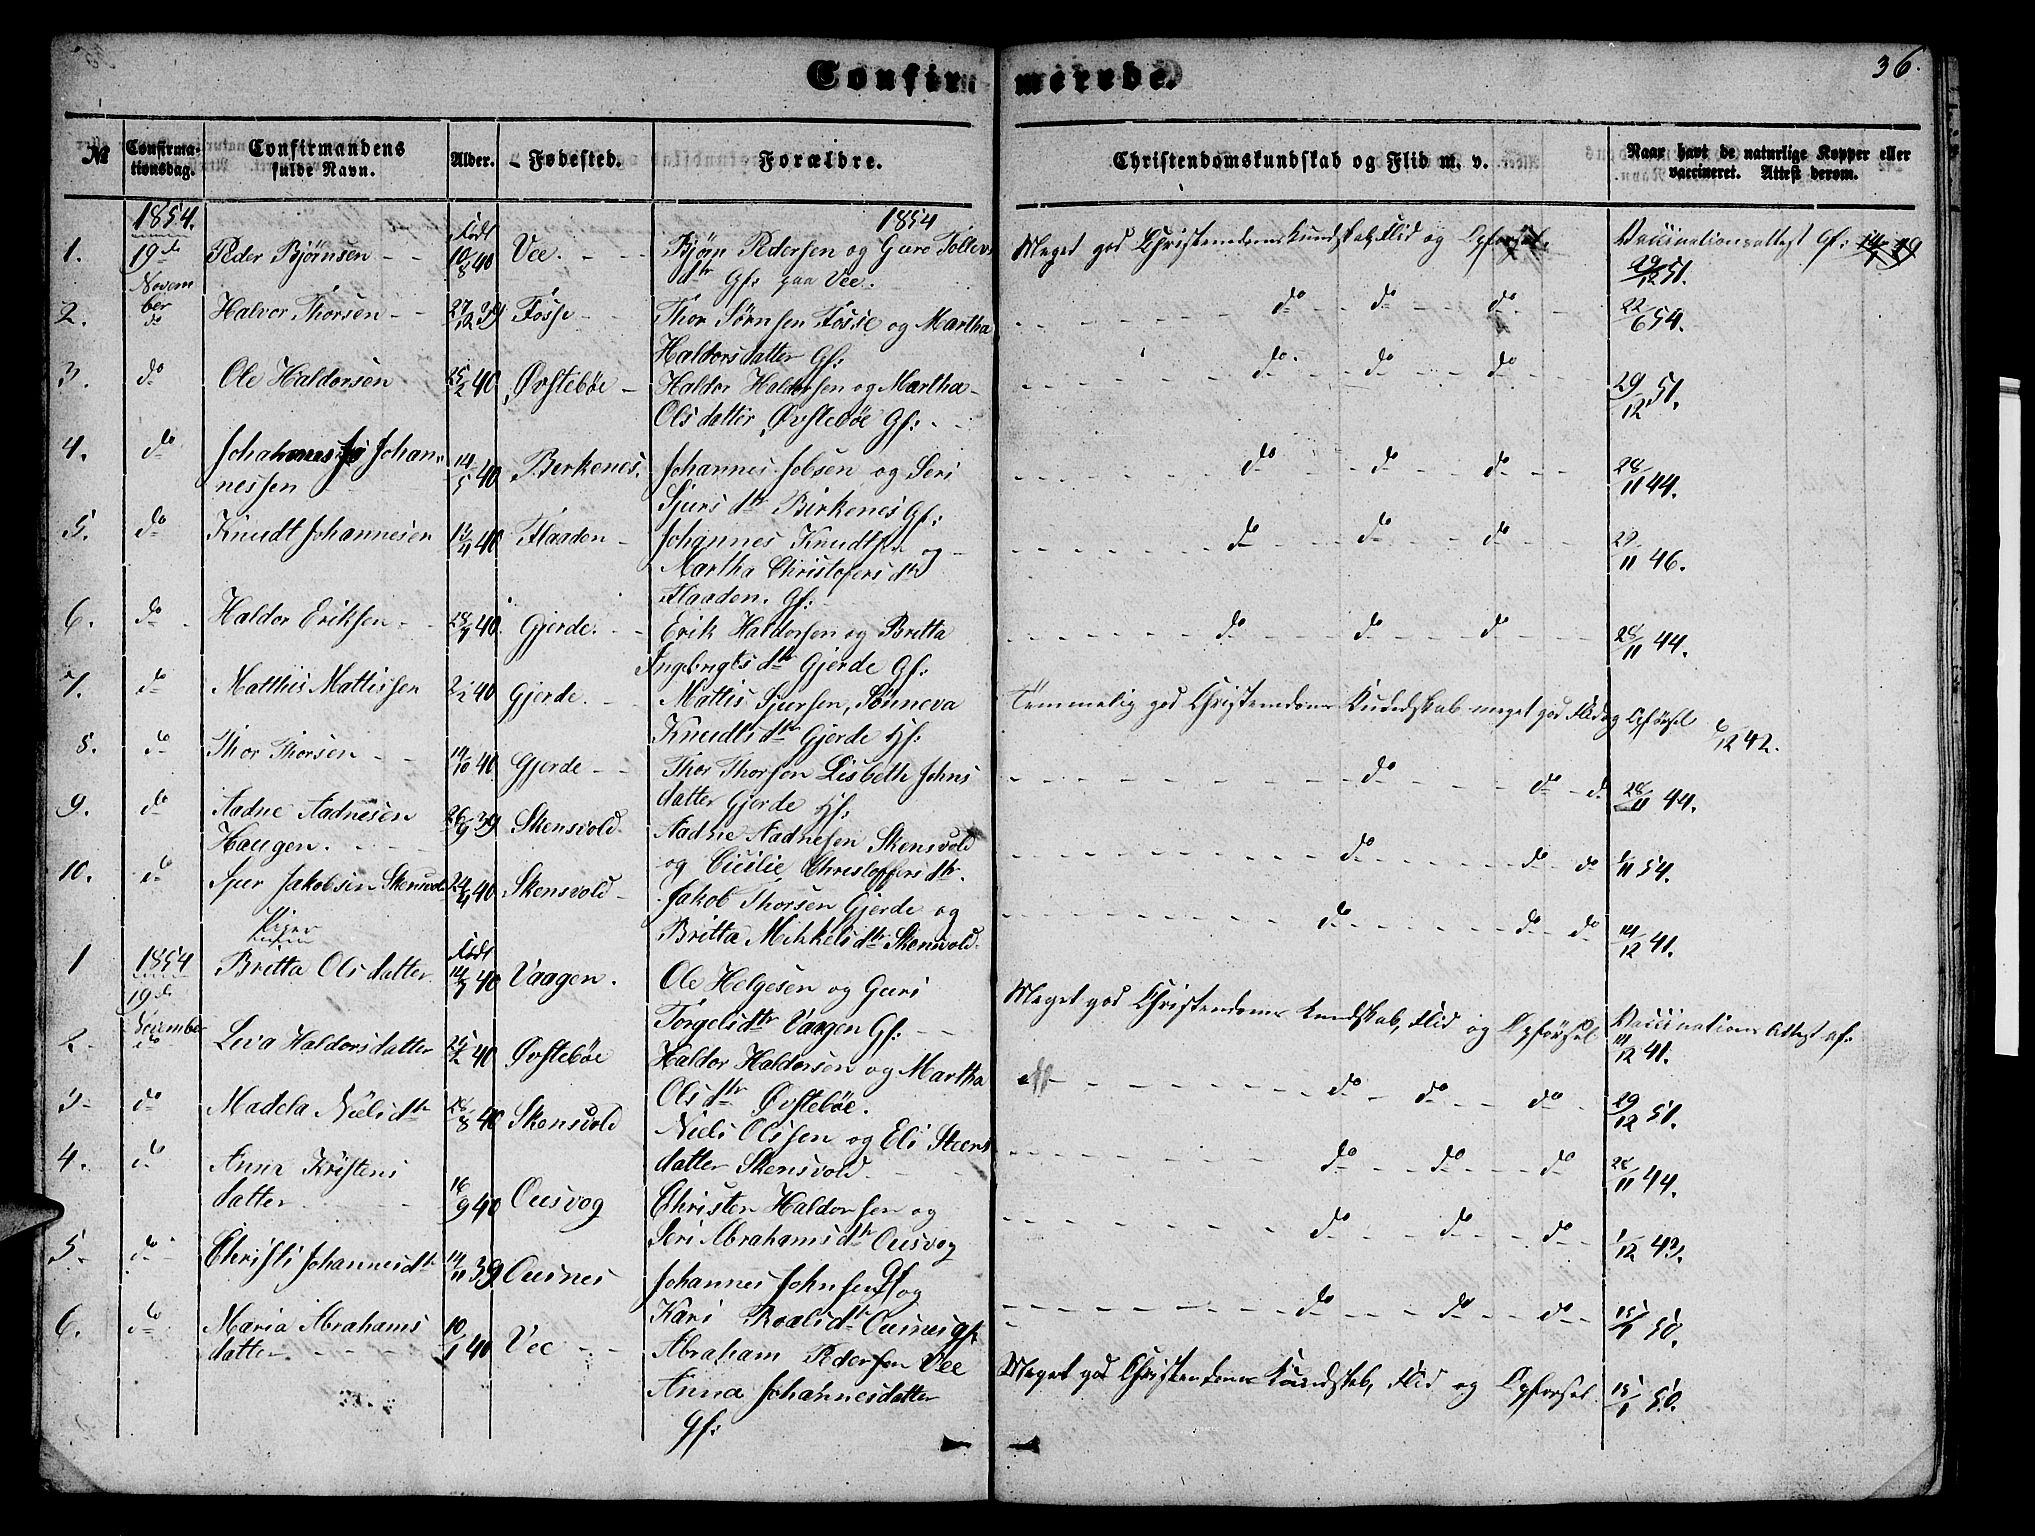 Confirmerede.
36.
№ Confirmationsdag. Confirmandens fulde Navn. Alder. Fødested. Forældre. Christendomskundskab og Flid m. v. Naar havt de naturlige Kopper eller vaccineret. Attest derom.
1854. Født 1854
1. 19de Peder Bjørnsen - - 10/8 40 Vee. - - Bjørn Pedersen og Guro Tollevs Meget god Christendomskundskab, Flid og Opførsel. Vaccinationsattest Gf:
Novem dtr Gf: paa Vee. 29/12 51.
2. ber do Halvor Thorsen - - 27/12 39 Fosse - - Thor Sørnsen Fosse og Martha do do do 22/6 54.
Haldorsdatter Gf:
3. do Ole Haldorsen 25/2 40 Øvstebøe - Haldor Haldorsen og Martha do do do 29/12 51.
Olsdatter Øvstebøe Gf:
4. do Johannes Johan- 14/5 40 Berkenes. Johannes Jobsen og Seri do do do 28/11 44.
nessen Sjursdtr Birkenes Gf:
5. do Knudt Johannesen 40 Flaaden - Johannes Knudtsen og do do do 29/11 46.
Martha Christofersdtr
Flaaden. Gf:
6. do Haldor Eriksen - - 40. Gjerde. - - Erik Haldorsen og Britta do do do 28/11 44.
Ingebrigtsdtr Gjerde Gf:
7. do Matthis Mattissen 40 Gjerde. - Mattis Sjursen, Sønneva Temmelig god Christendoms Kundskab meget god Flid og Opførsel 6/12 42.
Knudtsdtr Gjerde Hf:
8. do Thor Thorsen - - 14/10 40 Gjerde - - Thor Thorsen Lisbeth Johns do do do 28/11 44.
datter Gjerde Hf:
9. do Aadne Aadnesen 26/9 39 Skensvold. Aadne Aadnesen Skensvold do do do 1/11 54.
Haugen. og Cicilie Christoffersdtr.
10. do Sjur Jakobsen Skensvold 40 Skensvold - Jakob Thorsen Gjerde og do do do 14/12 41.
Piger Født Britta Mikkelsdtr Skensvold.
1 1854 Britta Olsdatter 40 Vaagen. Ole Helgesen og Guri Meget god Christendoms kundskab, Flid og Opførsel Vaccinations Attest af:
19de Torgelsdtr Vaagen Gf: - - 14/12 41.
November
2. do Siva Haldorsdatter 25/2 40 Øvstebøe Haldor Haldorsen og Martha do do do 29/12 51.
Olsdtr Øvstebøe.
3 do Madela Nielsdtr 28/8 40 Skensvold Niels Olssen og Eli Steens do do do 28/11 44.
datter Skensvold
4. do Anna Kristens 16/9 40 Ousvog Christen Haldorsen og do do do 1/12 43.
datter Seri Abrahamsdtr Ousvog
Gf
5. do Christi Johannesdtr 14/11 39 Ousnes Johannes Johnsen og do do do 15/1 50.
Kari Roalsdtr Ousnes Gf
6. do Maria Abrahams 10/1 40 Vee - - Abraham Pedersen Vee Meget god Christendoms Kundskab, Flid og Opførsel. 15/1 50.
datter Anna Johannesdatter
Gf: